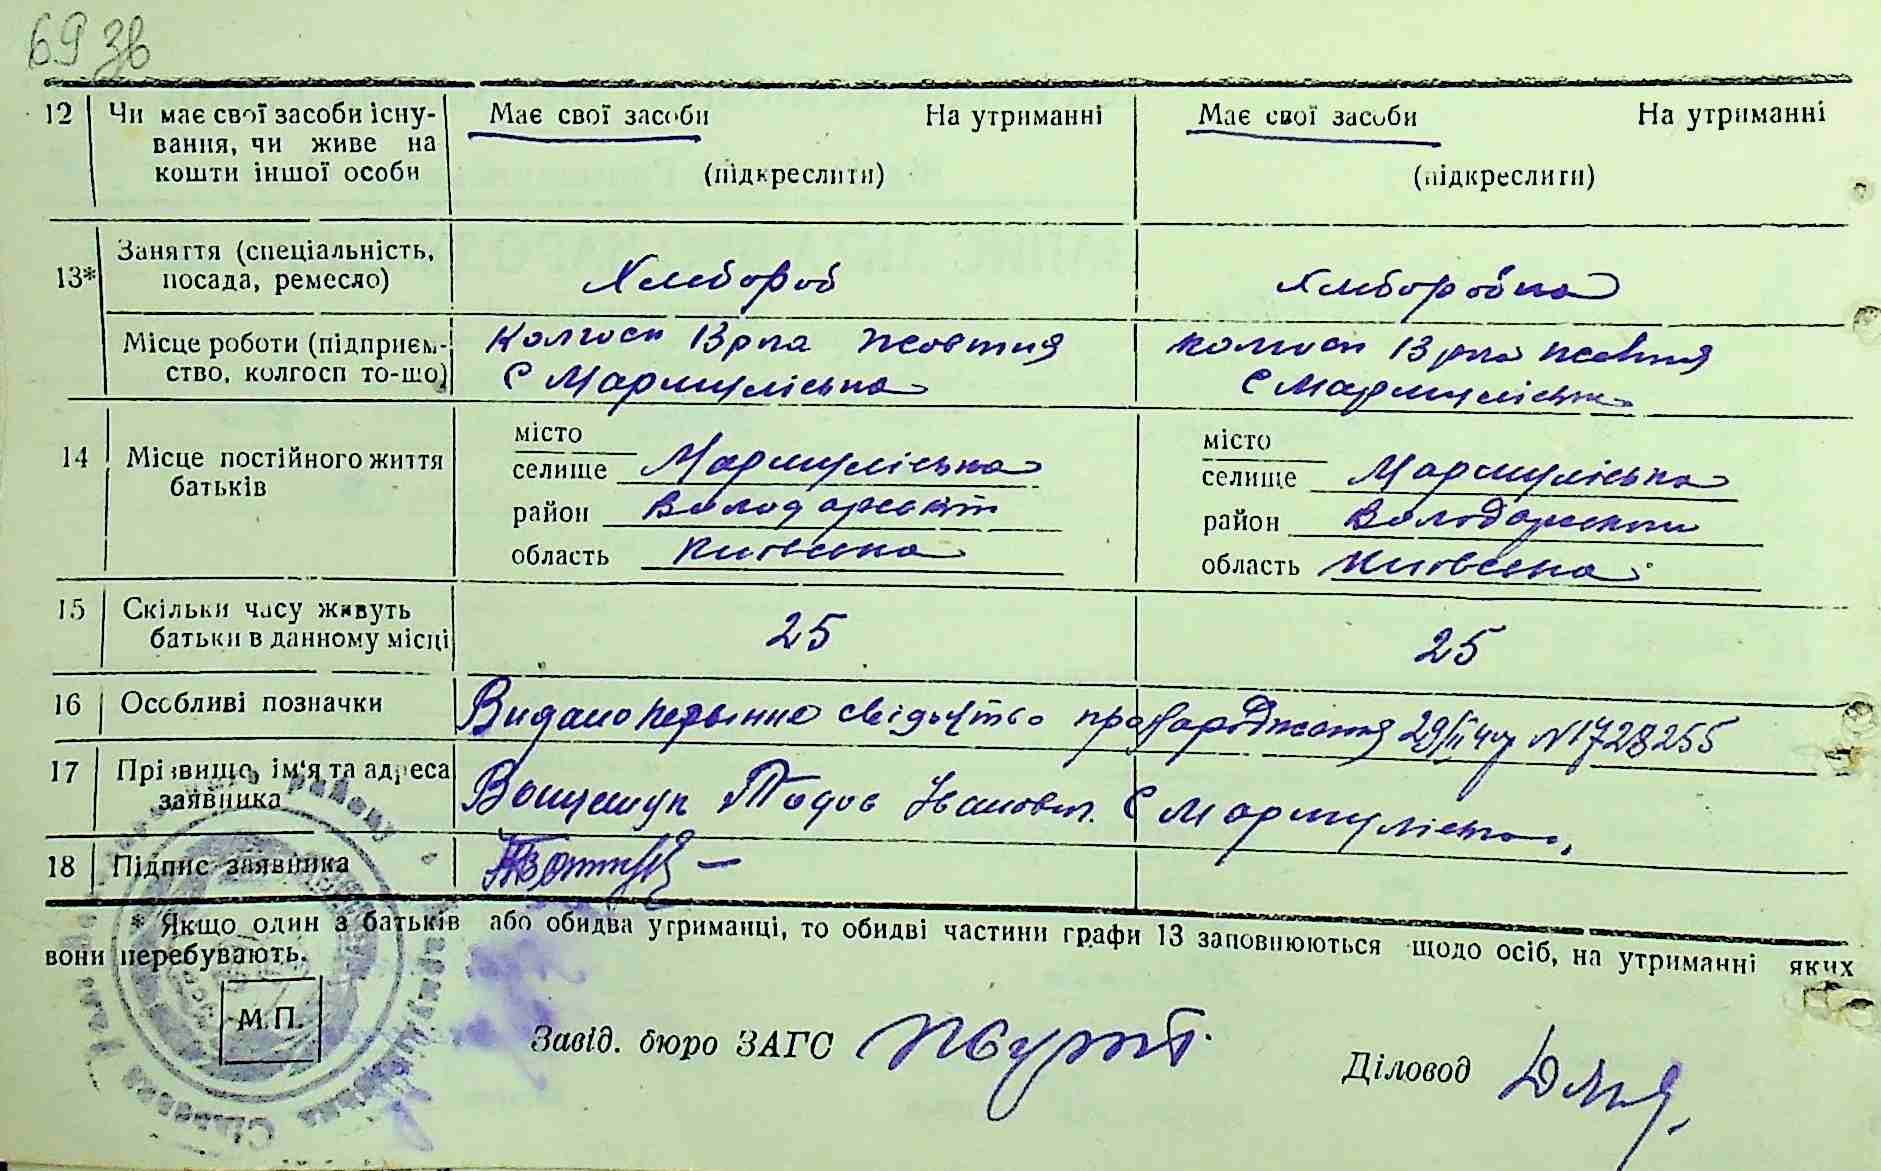 69 зв
12 Чи має свої засоби існу- Має свої засоби На утриманні Має свої засоби На утриманні
вання, чи живе на
кошти іншої особи (підкреслити) (підкреслити)
13* Заняття (спеціальність,
посада, ремесло) Хлибороб Хлиборобка
Місце роботи (підприєм- Колгосп 13 рпа жовтня колгосп 13 рпа жовтня
ство, колгосп то-що) С Мармуліївка С Мармуліївка
14 Місце постійного життя місто місто
батьків селище Мармуліївка селище Мармуліївка
район Володарський район Володарський
область Київська область Київська
15 Скільки часу живуть
батьки в данному місці 25 25
16 Особливі позначки Видано первинне свідоцтво про народження 29/II 40р №1728255
17 Прізвище, ім'я та адреса
заявника Тодос Іванович С Мармуліївка
18 Підпис заявника
* Якщо один з батьків або обидва утриманці, то обидві частини графи 13 заповнюються щодо осіб, на утриманні яких
вони перебувають.
М.П.
Завід. бюро ЗАГС
Діловод